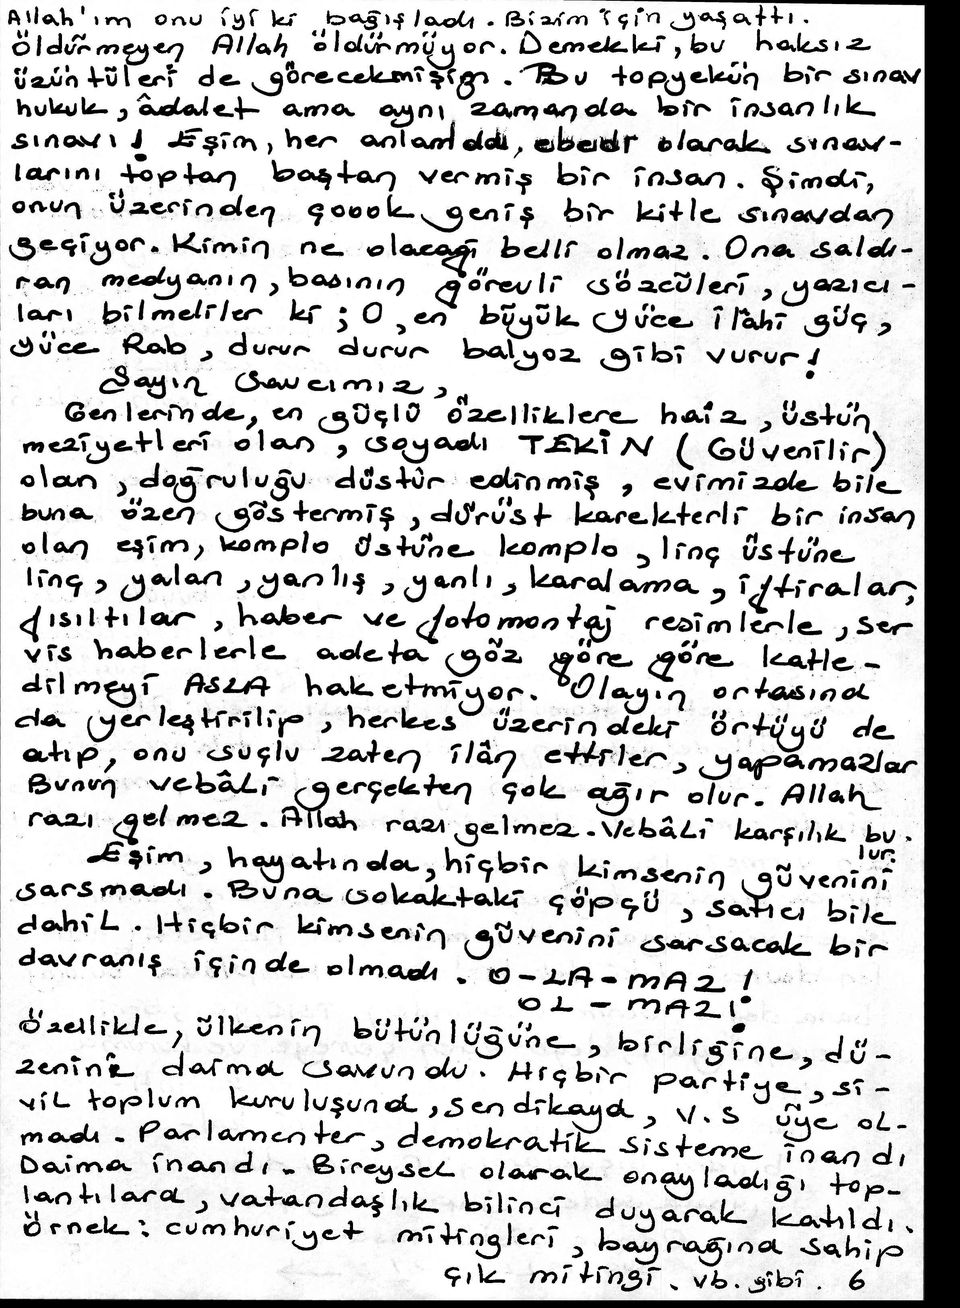 Allah'ım onu iyi ki bağışladı. Bizim için yaşattı.
öldürmeyen Allah öldürmüyor. Demekki, bu haksız
üzüntüleri de görecekmişiz. Bu topyekün bir sınav
hukuk, âdalet ama aynı zamanda bir insanlık
sınavı! Eşim, her anlamda, ebedi olarak sınav-
larını toptan baştan vermiş bir insan. Şimdi,
onun üzerinden çoook geniş bir kitle sınavdan
geçiyor. Kimin ne olacağı belli olmaz. Ona saldı-
ran medyanın, basının görevli sözcüleri, yazıcı-
ları bilmeliler ki; O, en büyük yüce ilâhi güç,
yüce Rab, durur durur balyoz gibi vurur!
Sayın Savcımız,
Genlerinde, en güçlü özelliklere haiz, üstün
meziyetleri olan, soyadı TEKİN (Güvenilir)
olan, doğruluğu düstûr edinmiş, evimizde bile
buna özen göstermiş, dürüst karekterli bir insan
olan eşim, komplo üstüne komplo, linç üstüne
linç, yalan, yanlış, yanlı, karalama, iftiralar,
fısıltılar, haber ve fotomontaj resimlerle, ser
vis haberlerle adeta göz göre göre katle-
dilmeyi ASLA haketmiyor. Olayın ortasına
da yerleştirilip, herkes üzerindeki örtüyü de
atıp, onu suçlu zaten ilân ettiler, yapamazlar
Bunun vebâLi gerçekten çok ağır olur. Allah
razı gelmez. Allah razı gelmez. VebâLi karşılık bu-
lur.
Eşim, hayatında, hiçbir kimsenin güvenini
sarsmadı. Buna sokaktaki çöpçü, satıcı bile
dahiL. Hiçbir kimsenin güvenini sarsacak bir
davranış içinde olmadı. O-LA-MAZ!
OL-MAZ!
Özellikle, ülkenin bütünlüğüne, birliğine, dü-
zenine daima savundu. Hiçbir partiye, si-
viL toplum kuruluşuna, sendikaya, v.s üye oL-
madı. Parlamenter, demokratik sisteme inandı
Daima inandı. BireyseL olarak onayladığı top-
lantılara, vatandaşlık bilinci duyarak katıldı.
örnek: cumhuriyet mitingleri, bayrağına sahip
çık mitingi. vb. gibi. 6